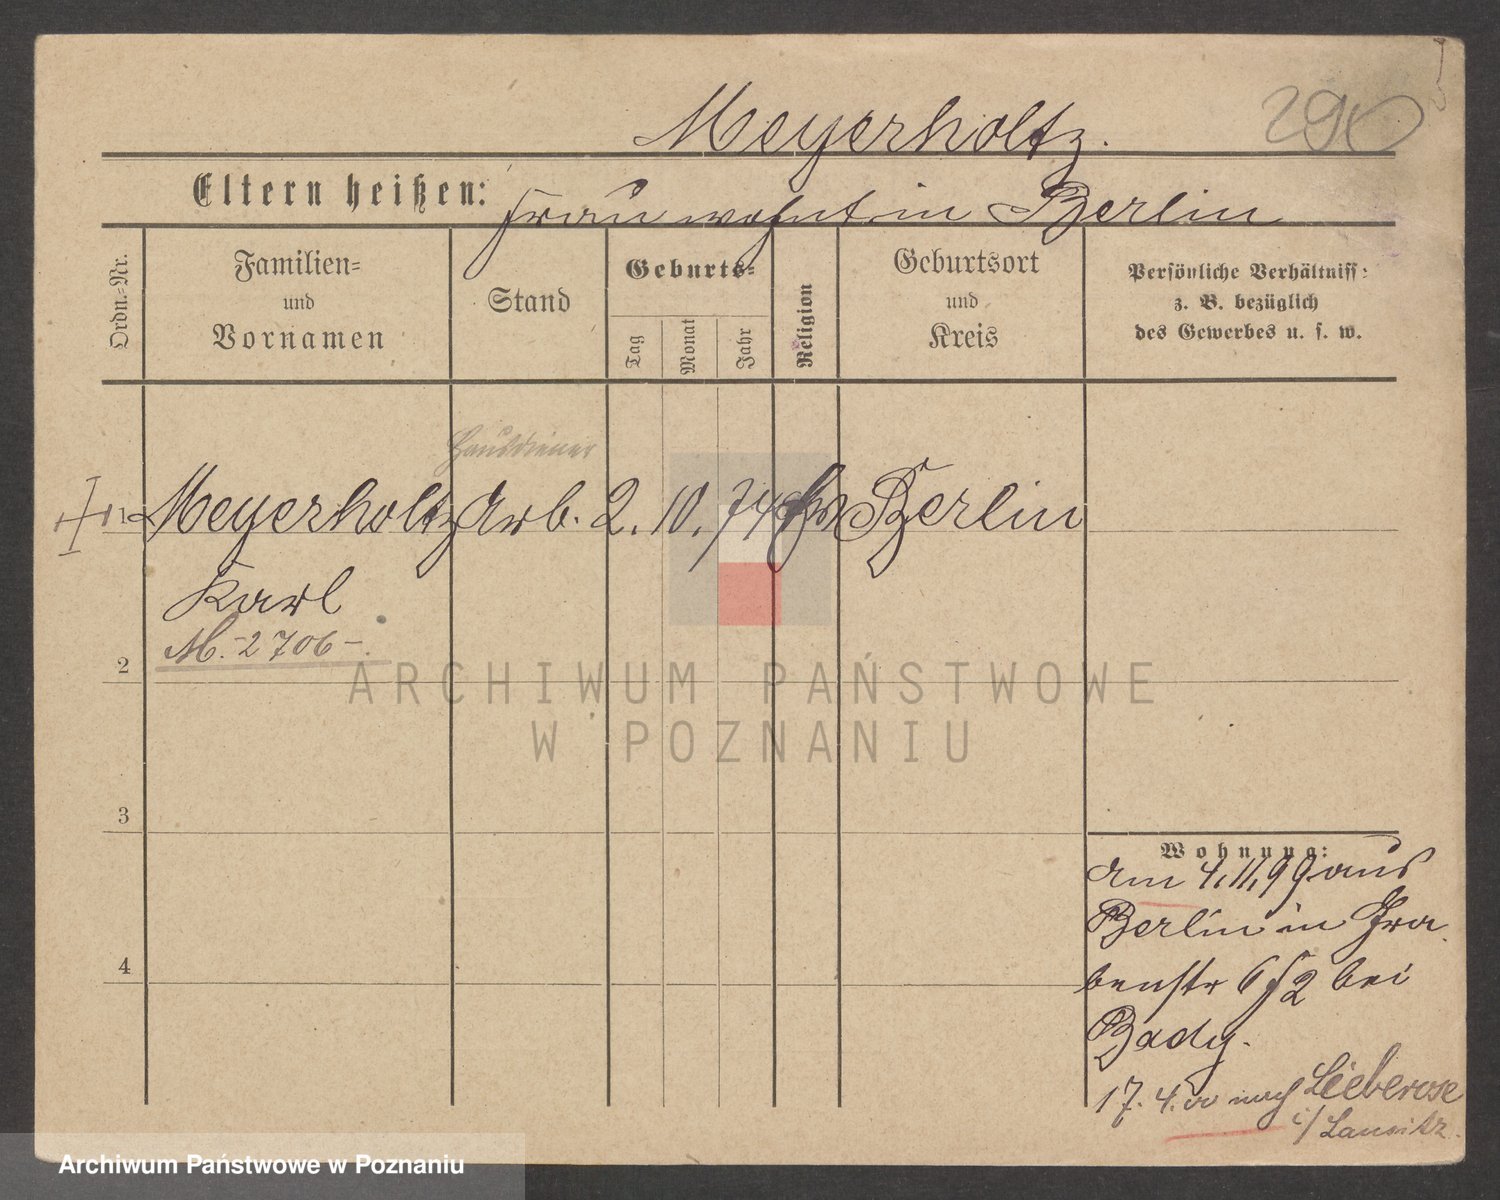 290
Meyerholtz.
Eltern heißen: Frau wohnt in Berlin
Ordn.-Nr.
Familien-
und
Vornamen
Stand
Geburts-
Tag
Monat
Jahr
Religion
Geburtsort
und
Kreis
Persönliche Verhältniss:
z. B. bezüglich
des Gewerbes u. s. w.
Hausdiener
1 Meyerholtz Arb. 2. 10. 74 Berlin
Karl
M. -2706-.
2
3
4
Wohnung:
am 4.11.99 aus
Berlin in Gra
benstr 6 bei
17. 4. 00 nach Lieberose
i/ Lausitz.
ARCHIWUM PAŃSTWOWE
W POZNANIU
Archiwum Państwowe w Poznaniu